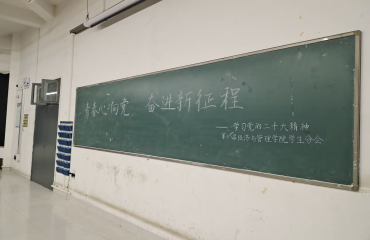 青春心向党 奋进新征程
——学习党的二十大精神
经济与管理学院学生分会